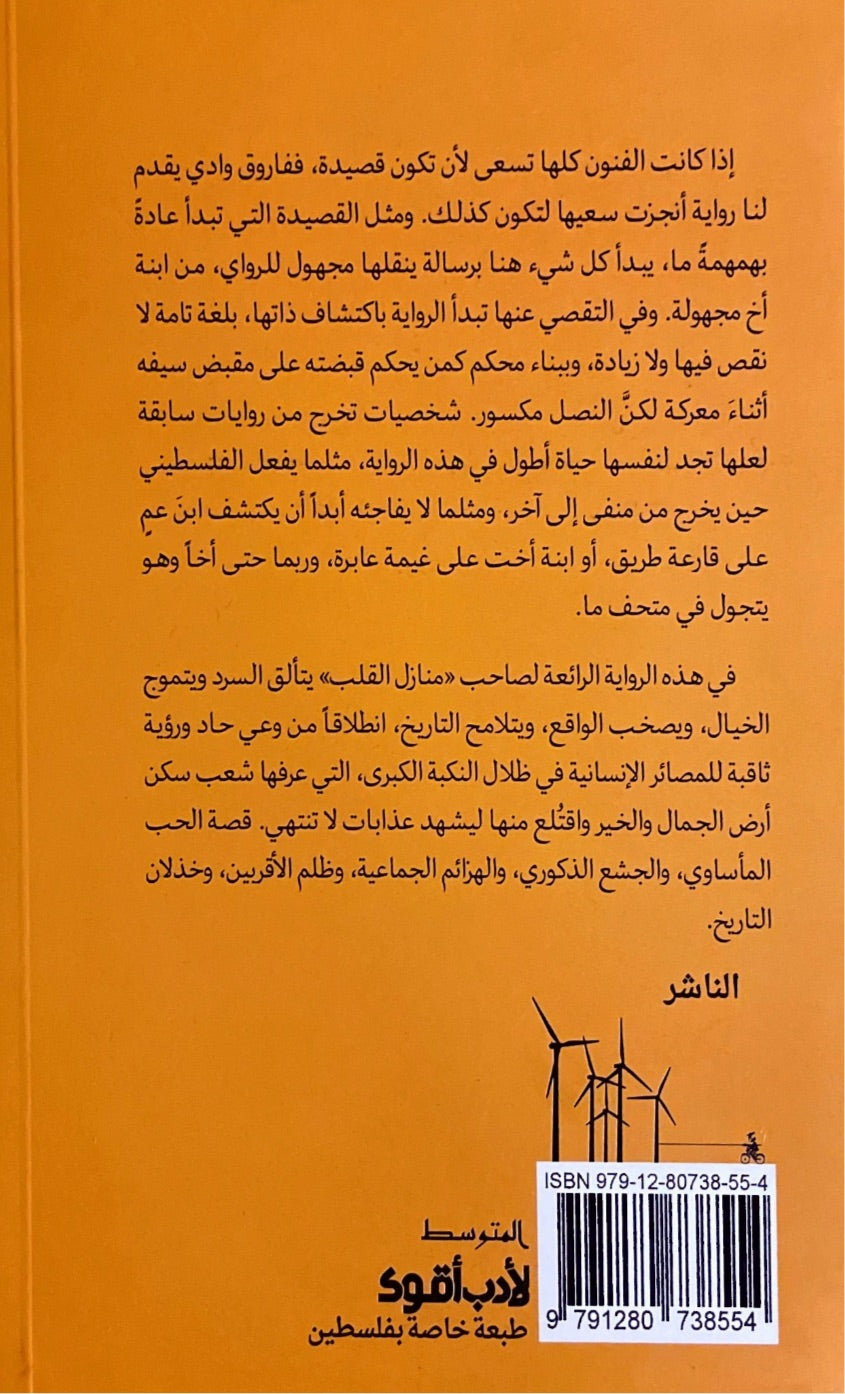 إذا كانت الفنون كلها تسعى لأن تكون قصيدة، ففاروق وادي يقدم
لنا رواية أنجزت سعيها لتكون كذلك. ومثل القصيدة التي تبدأ عادةً
بهمهمةً ما، يبدأ كل شيء هنا برسالة ينقلها مجهول للرواي، من ابنة
أخ مجهولة. وفي التقصي عنها تبدأ الرواية باكتشاف ذاتها، بلغة تامة لا
نقص فيها ولا زيادة، وببناء محكم كمن يحكم قبضته على مقبض سيفه
أثناءَ معركة لكنَّ النصل مكسور. شخصيات تخرج من روايات سابقة
لعلها تجد لنفسها حياة أطول في هذه الرواية، مثلما يفعل الفلسطيني
حين يخرج من منفى إلى آخر، ومثلما لا يفاجئه أبداً أن يكتشف ابنَ عمٍ
على قارعة طريق، أو ابنة أخت على غيمة عابرة، وربما حتى أخاً وهو
يتجول في متحف ما.
في هذه الرواية الرائعة لصاحب «منازل القلب» يتألق السرد ويتموج
الخيال، ويصخب الواقع، ويتلامح التاريخ، انطلاقاً من وعي حاد ورؤية
ثاقبة للمصائر الإنسانية في ظلال النكبة الكبرى، التي عرفها شعب سكن
أرض الجمال والخير واقتُلع منها ليشهد عذابات لا تنتهي. قصة الحب
المأساوي، والجشع الذكوري، والهزائم الجماعية، وظلم الأقربين، وخذلان
التاريخ.
الناشر
ISBN 979-12-80738-55-4
9 791280 738554
المتوسط
لأدب أقوى
طبعة خاصة بفلسطين